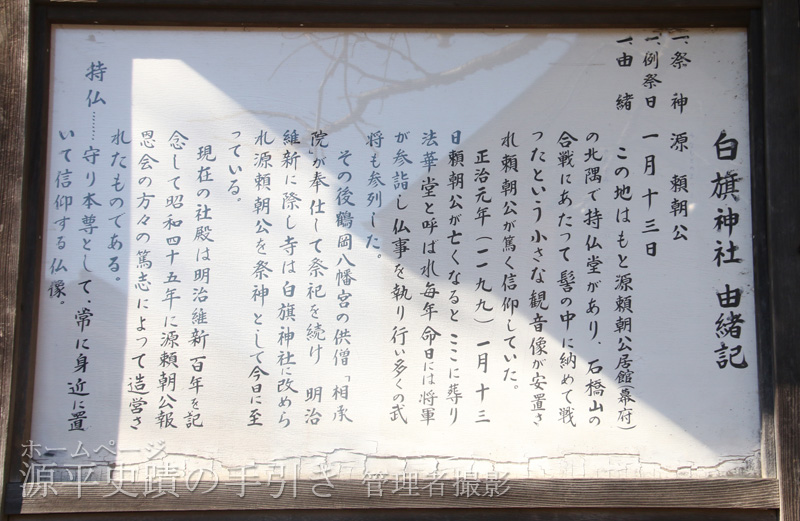 白旗神社 由緒記
一、祭神 源 頼朝公
一、例祭日 一月十三日
一、由緒
この地はもと源頼朝公居館(幕府)
の北隅で持仏堂があり、石橋山の
合戦にあたって髻の中に納めて戦
ったという小さな観音像が安置さ
れ頼朝公が篤く信仰していた。
正治元年(一一九九)一月十三
日頼朝公が亡くなるとここに葬り
法華堂と呼ばれ毎年命日には将軍
が参詣し仏事を執り行い多くの武
将も参列した。
その後鶴岡八幡宮の供僧「相承
院」が奉仕して祭祀を続け 明治
維新に際し寺は白旗神社に改めら
れ源頼朝公を祭神として今日に至
っている。
現在の社殿は明治維新百年を記
念して昭和四十五年に源頼朝公報
恩会の方々の篤志によって造営さ
れたものである。
持仏……守り本尊として、常に身近に置
いて信仰する仏像。
ホームページ
源平史蹟の手引き 管理者撮影